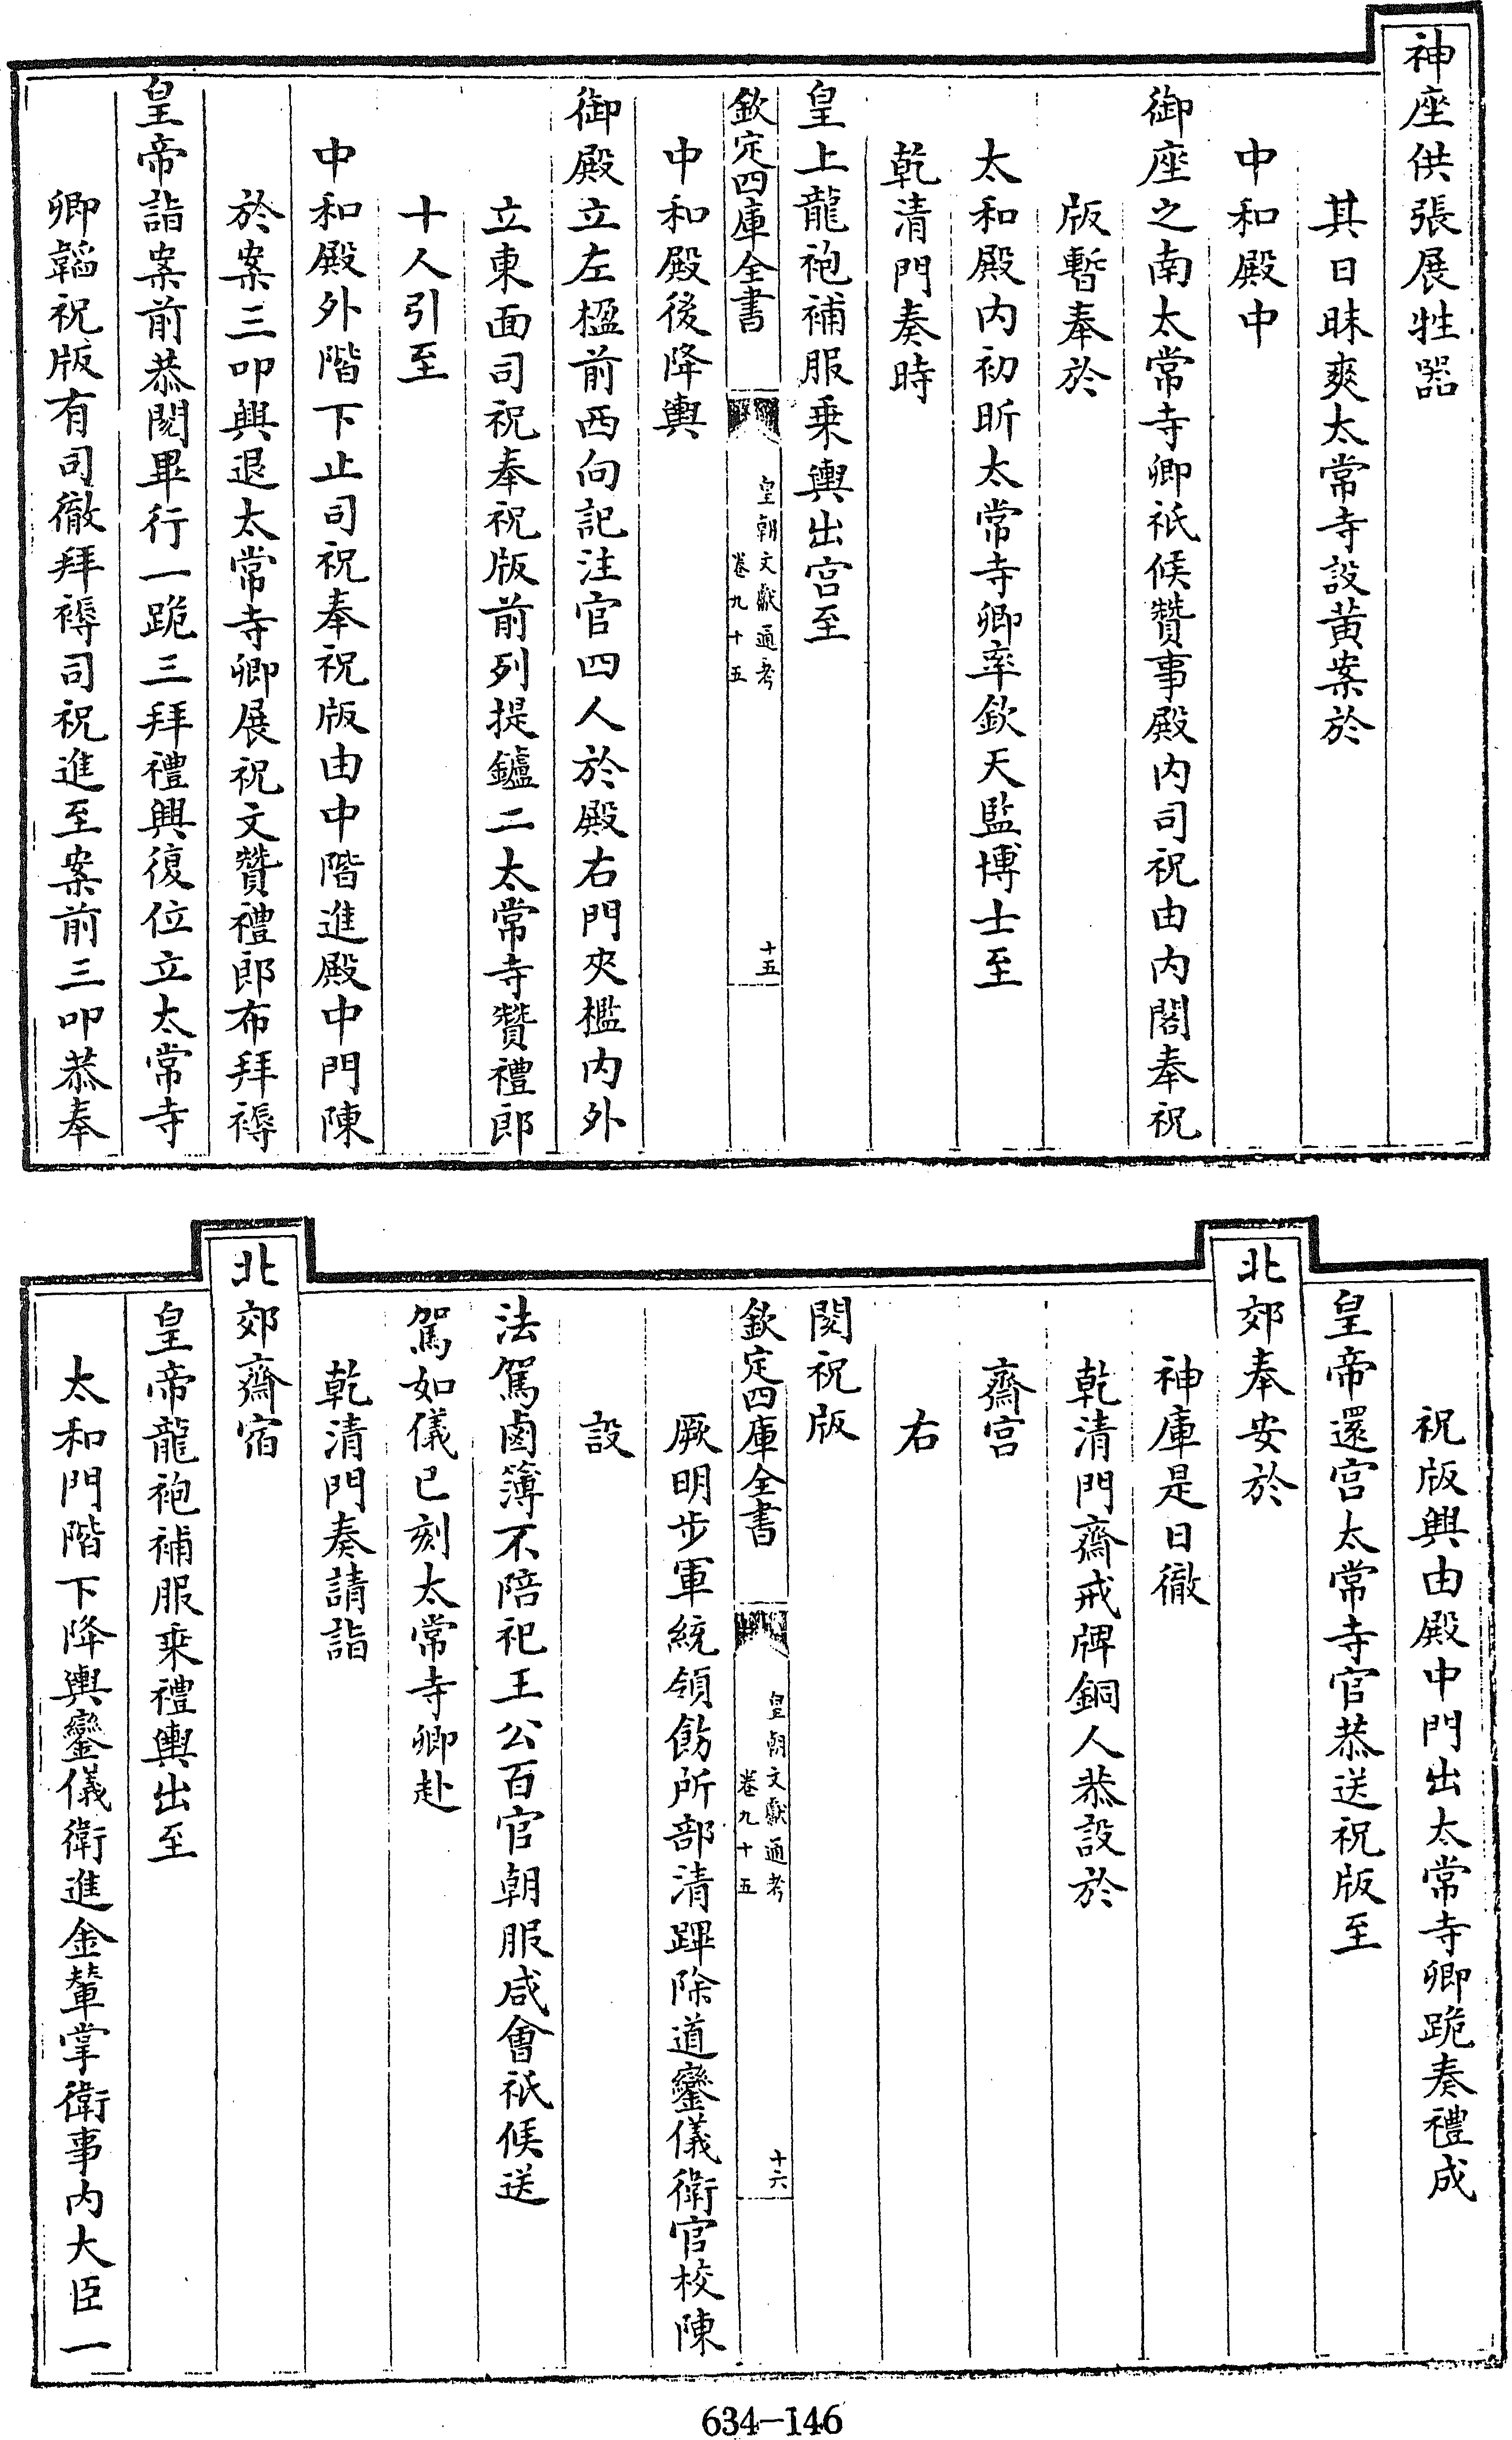 神座供張展牲器
其日昧爽太常寺設黄案於
中和殿中
御座之南太常寺卿祗候贊事殿内司祝由内閣奉祝
版暫奉於
太和殿内初昕太常寺卿率欽天監博士至
乾清門奏時
皇上龍袍補服乗輿出宫至
欽定四庫全書
皇朝文獻通考
卷九十五
十五
中和殿後降輿
御殿立左楹前西向記注官四人於殿右門夾檻内外
立東面司祝奉祝版前列提鑪二太常寺贊禮郎
十人引至
中和殿外階下止司祝奉祝版由中階進殿中門陳
於案三叩興退太常寺卿展祝文贊禮郎布拜褥
皇帝詣案前恭閲畢行一跪三拜禮興復位立太常寺
卿韜祝版有司徹拜褥司祝進至案前三叩恭奉
祝版興由殿中門出太常寺卿跪奏禮成
皇帝還宫太常寺官恭送祝版至
北郊奉安於
神庫是日徹
乾清門齋戒牌銅人恭設於
齋宫
右
閲祝版
欽定四庫全書
皇朝文獻通考
卷九十五
十六
厥明步軍統領飭所部清蹕除道鑾儀衛官校陳
設
法駕鹵簿不陪祀王公百官朝服咸會祗候送
駕如儀已刻太常寺卿赴
乾清門奏請詣
北郊齋宿
皇帝龍袍補服乗禮輿出至
太和門階下降輿鑾儀衛進金輦掌衛事内大臣一
634-146